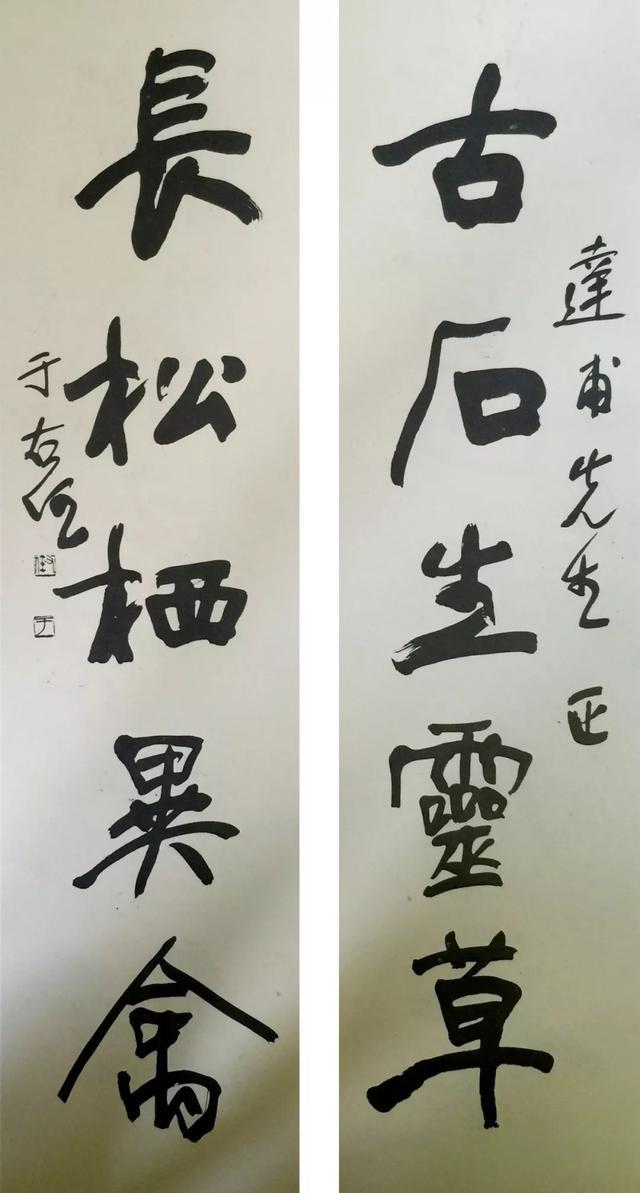 達甫先生正
古石生靈草
長松栖異禽
于右任